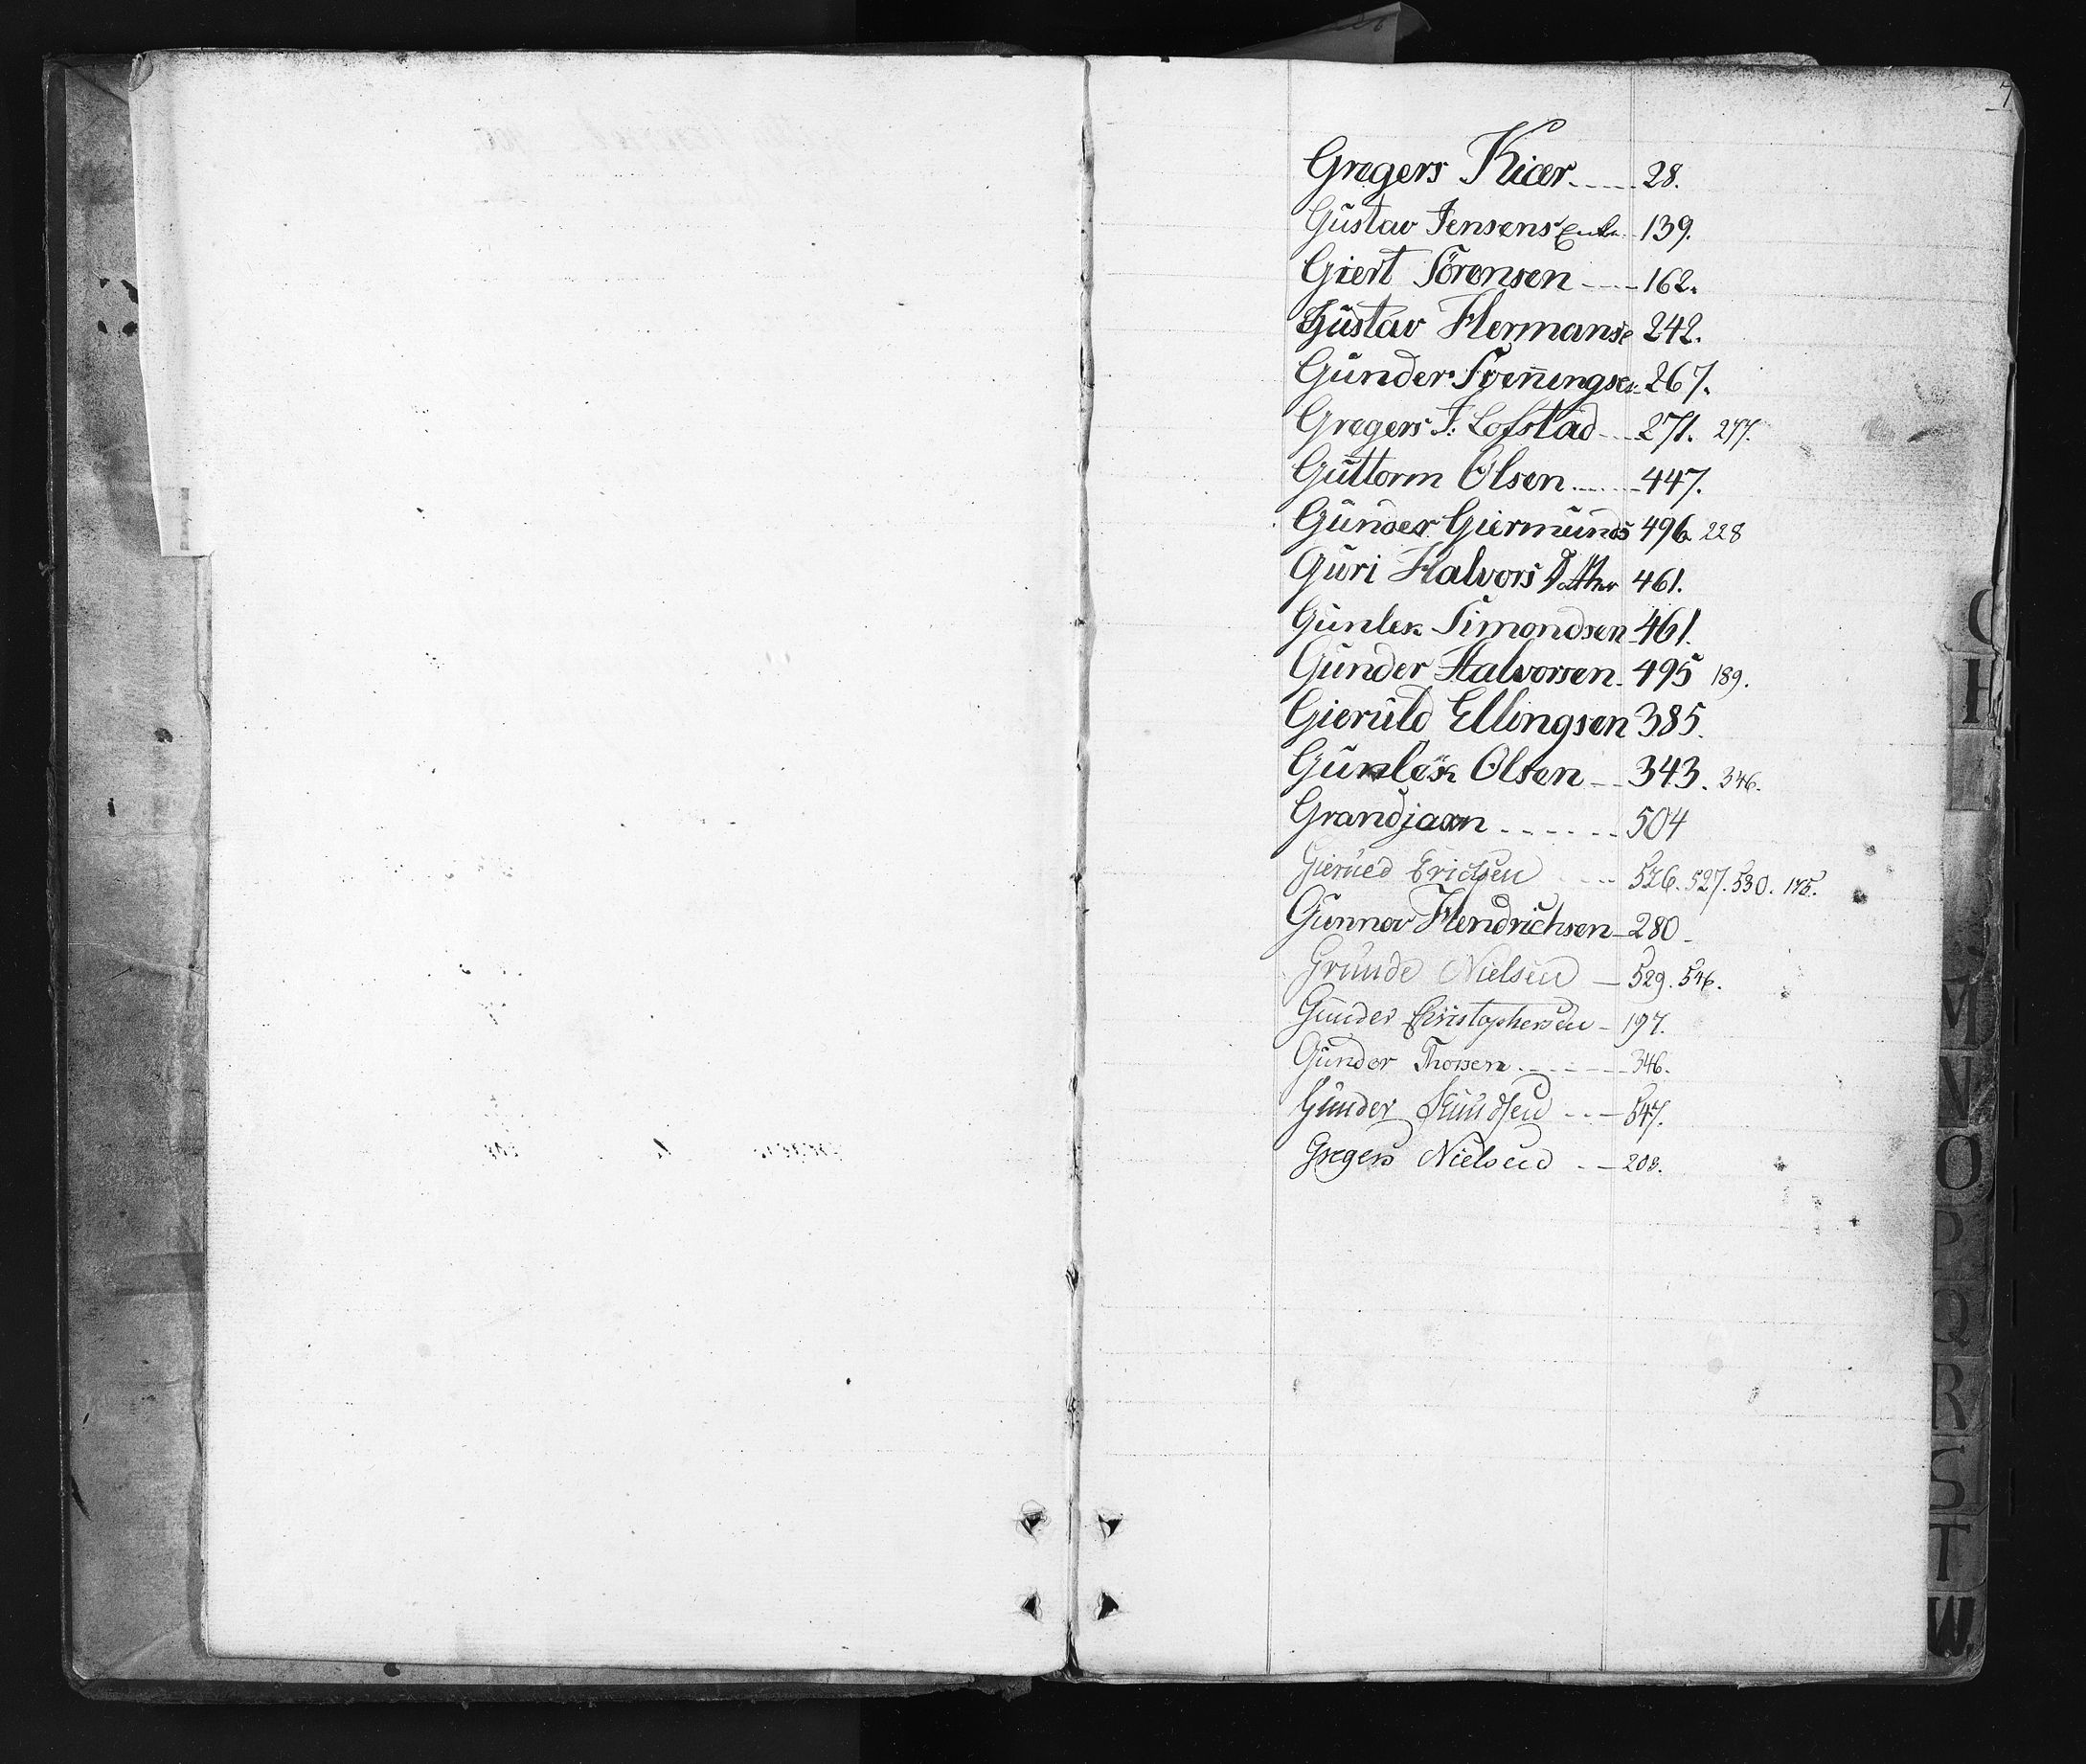 7
Gregers Kiær 28.
Gustav Jensens Enke 139.
Giert Sörensen 162.
Gustav Hermanse 242.
Gunder Svenningsen 267.
Gregers J: Lofstad 271. 277.
Guttorm Olsen 447.
Gunder Giermunds 496. 228
Guri Halvors Datter 461.
Gunlek Simondsen 461.
Gunder Halvorsen 495 189.
Gieruld Ellingsen 385.
Gunlek Olsen 343. 346.
Grandjean 504
Erichsen 526. 527. 530. 175.
Gunnov Hendrichsen 280
Grunde Nielsen 529. 546.
Gunder Christophersen 197.
Gunder Thorsen 346.
Gunder Knudsen 547.
Gregers Nielsen 208.
G
H
M
N
O
P
Q
R
S
T
W